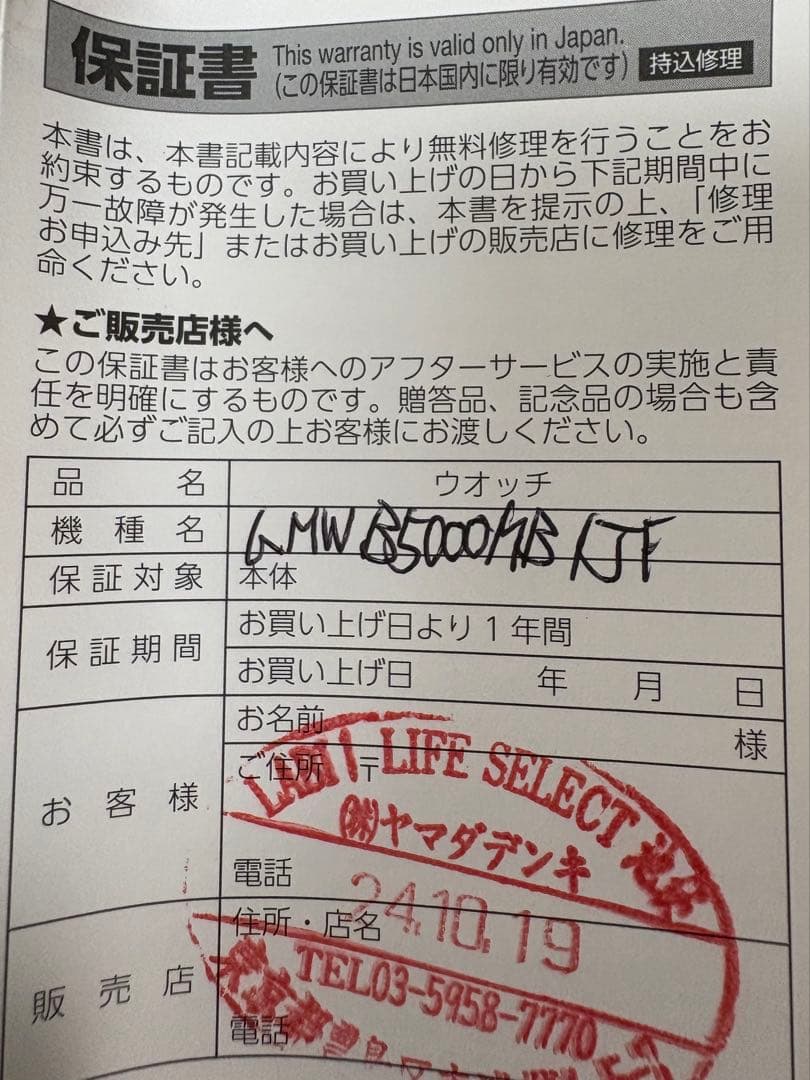 保証書
This warranty is valid only in Japan.
(この保証書は日本国内に限り有効です)
持込修理
本書は、本書記載内容により無料修理を行うことをお
約束するものです。お買い上げの日から下記期間中に
万一故障が発生した場合は、本書を提示の上、「修理
お申込み先」またはお買い上げの販売店に修理をご用
命ください。
★ご販売店様へ
この保証書はお客様へのアフターサービスの実施と責
任を明確にするものです。贈答品、記念品の場合も含
めて必ずご記入の上お客様にお渡しください。
品名 ウオッチ
機種名 GMW B5000 1JF
保証対象 本体
保証期間 お買い上げ日より1年間
お買い上げ日 年 月 日
お客様 お名前 様
ご住所 〒
電話
販売店 住所・店名
電話
LABI1 LIFE SELECT 池袋
㈱ヤマダデンキ
24.10.19
TEL03-5958-7770
東京都豊島区